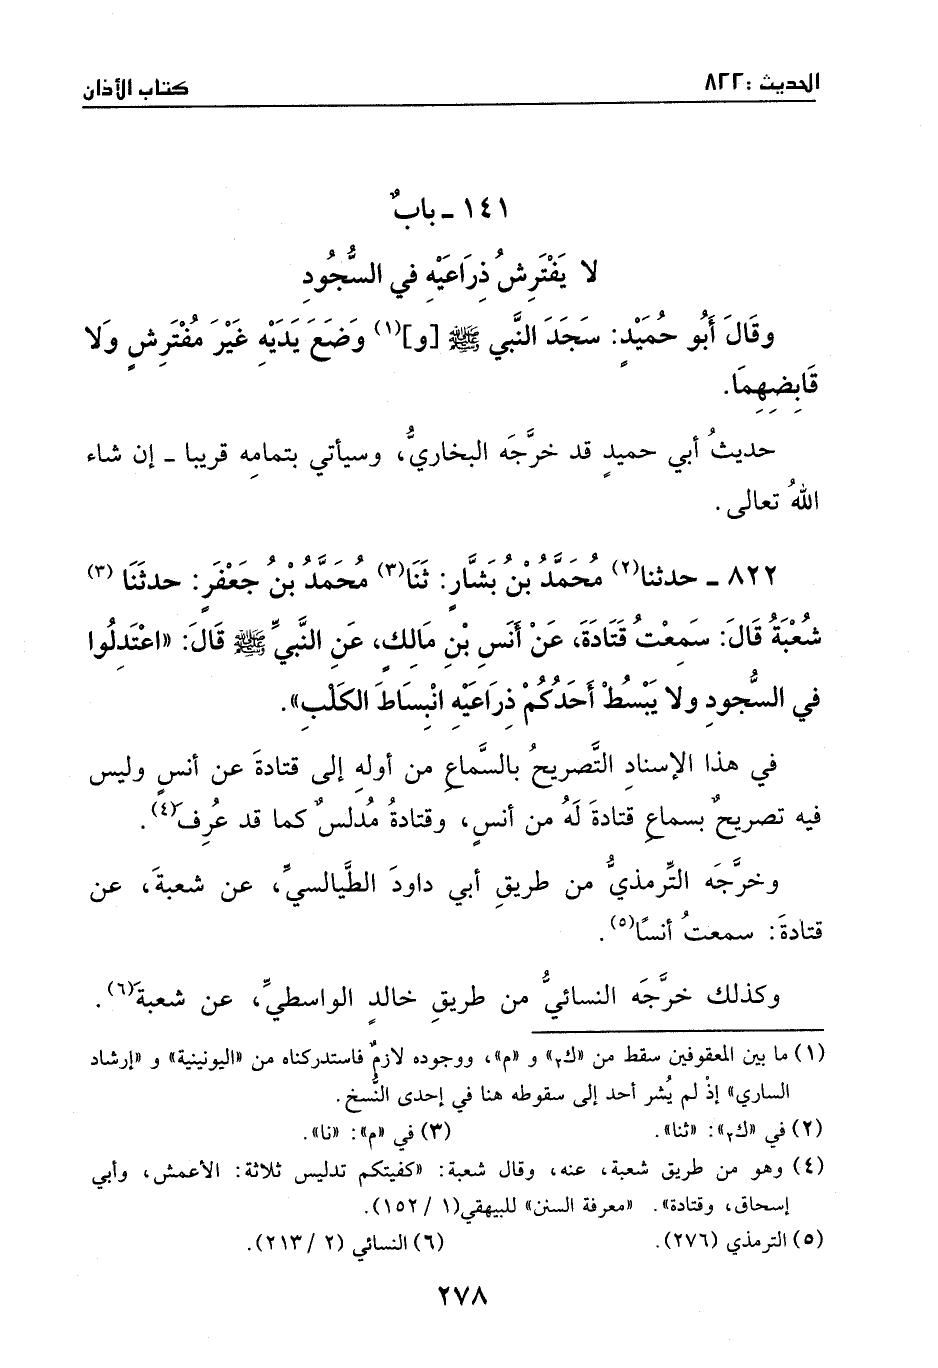 الحديث : ٨٢٢
كتاب الأذان
١٤١ - بابٌ
لا يَفْتَرِشُ ذِرَاعَيْهِ في السُّجُودِ
وقَالَ أَبُو حُمَيْدٍ: سَجَدَ النَّبي ﷺ [و](١) وَضَعَ يَدَيْهِ غَيْرَ مُفْتَرِشٍ وَلا
قَابِضِهِمَا.
حديثُ أبي حميدٍ قد خرَّجَه البخاريُّ، وسيأتي بتمامِه قريبا - إن شاء
اللهُ تعالى.
٨٢٢ - حدثنا(٢) مُحَمَّدُ بْنُ بَشَّارٍ: ثَنَا(٣) مُحَمَّدُ بْنُ جَعْفَرٍ: حدثَنَا (٣)
شُعْبَةُ قَالَ: سَمِعْتُ قَتَادَةَ، عَنْ أَنَسِ بْنِ مَالِكٍ، عَنِ النَّبيِّ ﷺ قَالَ: «اعْتَدِلُوا
في السُّجودِ ولا يَبْسُطْ أَحَدُكُمْ ذِرَاعَيْهِ انْبِسَاطَ الكَلْبِ».
في هذا الإسنادِ التَّصريحُ بالسَّماعِ من أوله إلى قتادةَ عن أنسٍ وليس
فيه تصريحٌ بسماعِ قتادةَ لَهُ من أنسٍ، وقتادةُ مُدلسٌ كما قد عُرِفَ(٤).
وخرَّجَه التِّرمذيُّ من طريقِ أبي داودَ الطَّيالسيِّ، عن شعبةَ، عن
قتادةَ: سمعتُ أنسًا(٥).
وكذلك خرَّجَه النسائيُّ من طريقِ خالدٍ الواسطيِّ، عن شعبةَ(٦).
(١) ما بين المعقوفين سقط من «ك٢» و «م»، ووجوده لازمٌ فاستدركناه من «اليونينية» و «إرشاد
الساري» إذْ لم يُشر أحد إلى سقوطه هنا في إحدى النُّسخ.
(٢) في «ك٢»: «ثنا». (٣) في «م»: «نا».
(٤) وهو من طريق شعبة، عنه، وقال شعبة: «كفيتكم تدليس ثلاثة: الأعمش، وأبي
إسحاق، وقتادة». «معرفة السنن» للبيهقي(١ / ١٥٢).
(٥) الترمذي (٢٧٦). (٦) النسائي (٢ / ٢١٣).
٢٧٨